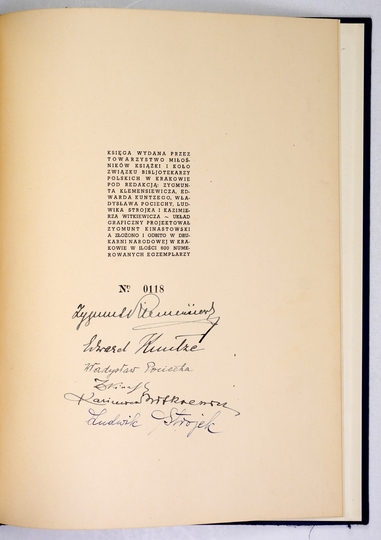 KSIĘGA WYDANA PRZEZ
TOWARZYSTWO MIŁOŚ-
NIKÓW KSIĄŻKI I KOŁO
ZWIĄZKU BIBLJOTEKARZY
POLSKICH W KRAKOWIE
POD REDAKCJĄ: ZYGMUN-
TA KLEMENSIEWICZA, ED-
WARDA KUNTZEGO, WŁA-
DYSŁAWA POCIECHY, LUD-
WIKA STROJKA I KAZIMIE-
RZA WITKIEWICZA — UKŁAD
GRAFICZNY PROJEKTOWAŁ
ZYGMUNT KINASTOWSKI
A ZŁOŻONO I ODBITO W DRU-
KARNI NARODOWEJ W KRA-
KOWIE W ILOŚCI 600 NUME-
ROWANYCH EGZEMPLARZY
Nº 0118
Zygmunt Klemensiewicz
Edward Kuntze
Władysław Pociecha
Kazimierz Witkiewicz
Ludwik Strojek